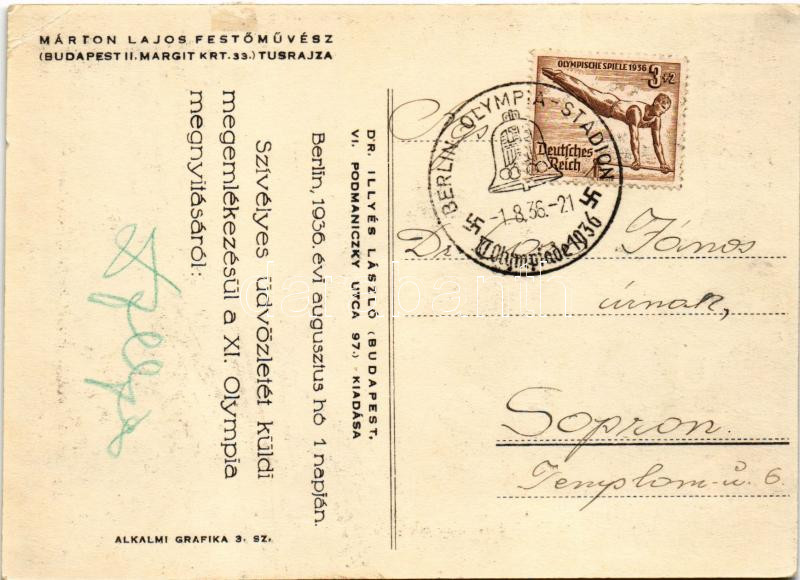 MÁRTON LAJOS FESTŐMŰVÉSZ
(BUDAPEST II. MARGIT KRT. 33.) TUSRAJZA
Szívélyes üdvözletét küldi
megemlékezésül a XI. Olympia
megnyitásáról:
Berlin, 1936. évi augusztus hó 1 napján.
DR. ILLYÉS LÁSZLÓ (BUDAPEST,
VI. PODMANICZKY UTCA 97.) KIADÁSA
ALKALMI GRAFIKA 3. SZ.
OLYMPISCHE SPIELE 1936
3+2
Deutsches
Reich
BERLIN OLYMPIA-STADION
-1.8.36.-21
XI. Olympiade 1936
János
úrnak,
Sopron.
Templom-u. 6.
darabanth